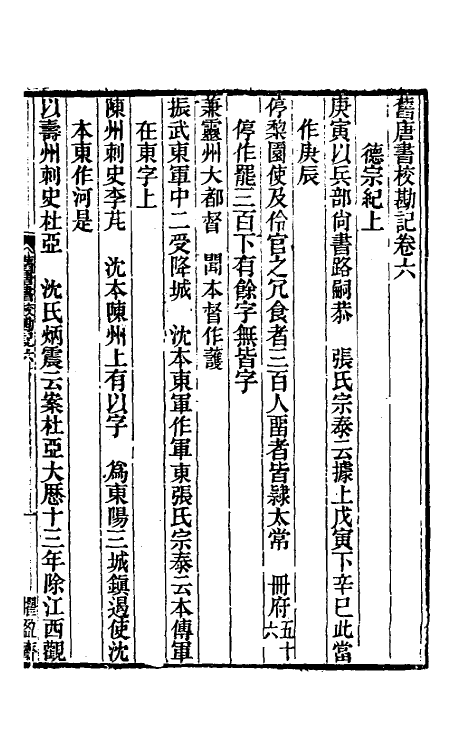 舊唐書校勘記卷六
德宗紀上
庚寅以兵部尙書路嗣恭　張氏宗泰云據上戊寅下辛巳此當
作庚辰
停棃園使及伶官之冗食者三百人畱者皆隷太常　冊府五十六
停作罷三百下有餘字無皆字
兼靈州大都督　聞本督作護
振武東軍中二受降城　沈本東軍作軍東張氏宗泰云本傳軍
在東字上
陳州刺史李芃　沈本陳州上有以字　爲東陽三城鎭遏使沈
本東作河是
以壽州刺史杜亞　沈氏炳震云案杜亞大厯十三年除江西觀
舊唐書校勘記六
一
懼盈齋